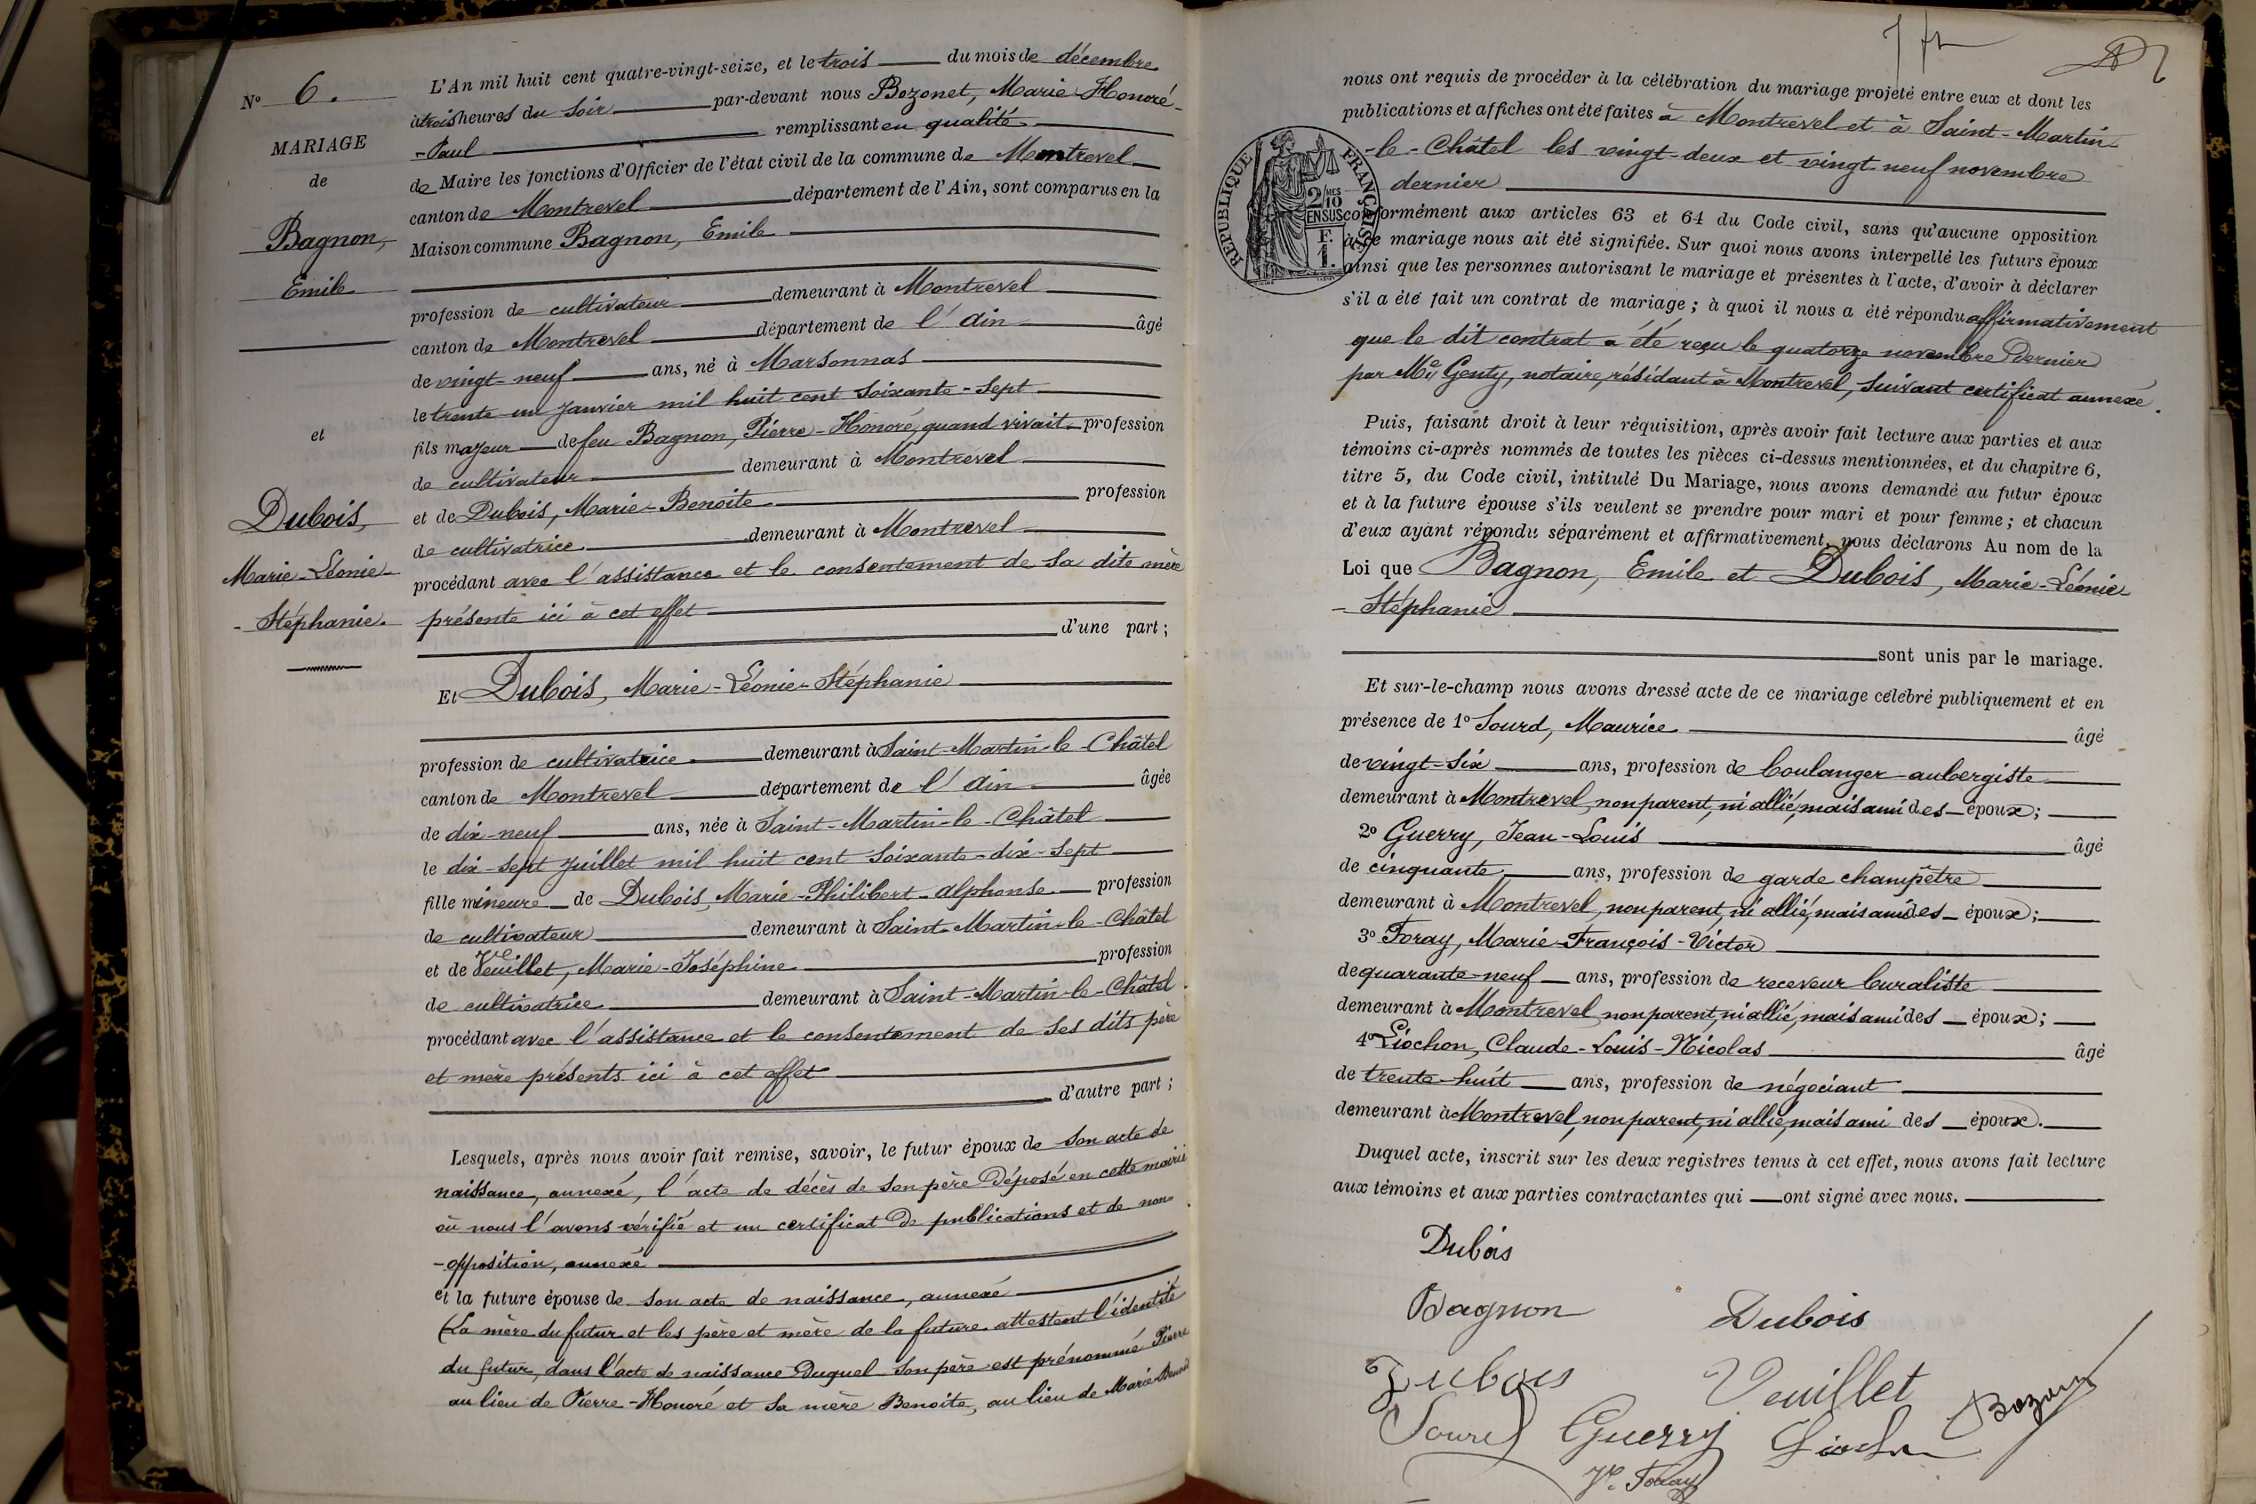 N° 6.
MARIAGE
de
Bagnon,
Emile
et
Dubois,
Marie-Léonie-
-Stéphanie.
L'An mil huit cent quatre-vingt-seize, et le trois du mois de décembre
à trois heures du soir par-devant nous Bozonet, Marie-Honoré-
-Paul remplissant en qualité
de Maire les fonctions d'Officier de l'état civil de la commune de Montrevel
canton de Montrevel département de l'Ain, sont comparus en la
Maison commune Bagnon, Emile
profession de cultivateur demeurant à Montrevel
canton de Montrevel département de l'Ain âgé
de vingt-neuf ans, né à Marsonnas
le trente un janvier mil huit cent soixante-sept
fils majeur de feu Bagnon, Pierre-Honoré, quand vivait profession
de cultivateur demeurant à Montrevel
et de Dubois, Marie-Benoite profession
de cultivatrice demeurant à Montrevel
procédant avec l'assistance et le consentement de sa dite mère
présente ici à cet effet
d'une part;
Et Dubois, Marie-Léonie-Stéphanie
profession de cultivatrice demeurant à Saint-Martin-le-Châtel
canton de Montrevel département de l'Ain âgée
de dix-neuf ans, née à Saint-Martin-le-Châtel
le dix-sept juillet mil huit cent soixante-dix-sept
fille mineure de Dubois, Marie-Philibert-Alphonse profession
de cultivateur demeurant à Saint-Martin-le-Châtel
et de Veuillet, Marie-Joséphine profession
de cultivatrice demeurant à Saint-Martin-le-Châtel
procédant avec l'assistance et le consentement de ses dits père
et mère présents ici à cet effet
d'autre part;
Lesquels, après nous avoir fait remise, savoir, le futur époux de son acte de
naissance, annexé, l'acte de décès de son père déposé en cette mairie
où nous l'avons vérifié et un certificat de publications et de non-
-opposition, annexé
et la future épouse de son acte de naissance, annexé
(La mère du futur et les père et mère de la future attestent l'identité
du futur, dans l'acte de naissance duquel son père est prénommé Pierre
au lieu de Pierre-Honoré et sa mère Benoite, au lieu de Marie-Benoite
nous ont requis de procéder à la célébration du mariage projeté entre eux et dont les
publications et affiches ont été faites à Montrevel et à Saint-Martin-
-le-Châtel les vingt-deux et vingt-neuf novembre
dernier
RÉPUBLIQUE FRANÇAISE
2/10 MES
EN SUS
F.
1.
conformément aux articles 63 et 64 du Code civil, sans qu'aucune opposition
à ce mariage nous ait été signifiée. Sur quoi nous avons interpellé les futurs époux
ainsi que les personnes autorisant le mariage et présentes à l'acte, d'avoir à déclarer
s'il a été fait un contrat de mariage; à quoi il nous a été répondu affirmativement
que le dit contrat a été reçu le quatorze novembre dernier
par Me Genty, notaire, résidant à Montrevel, suivant certificat annexé.
Puis, faisant droit à leur réquisition, après avoir fait lecture aux parties et aux
témoins ci-après nommés de toutes les pièces ci-dessus mentionnées, et du chapitre 6,
titre 5, du Code civil, intitulé Du Mariage, nous avons demandé au futur époux
et à la future épouse s'ils veulent se prendre pour mari et pour femme; et chacun
d'eux ayant répondu séparément et affirmativement, nous déclarons Au nom de la
Loi que Bagnon, Emile et Dubois, Marie-Léonie-
-Stéphanie
sont unis par le mariage.
Et sur-le-champ nous avons dressé acte de ce mariage célébré publiquement et en
présence de 1° Sourd, Maurice âgé
de vingt-six ans, profession de boulanger-aubergiste
demeurant à Montrevel, non parent, ni allié, mais ami des époux;
2° Guerry, Jean-Louis âgé
de cinquante ans, profession de garde champêtre
demeurant à Montrevel, non parent, ni allié, mais ami des époux;
3° Foray, Marie-François-Victor
de quarante-neuf ans, profession de receveur buraliste
demeurant à Montrevel, non parent, ni allié, mais ami des époux;
4° Liochon, Claude-Louis-Nicolas âgé
de trente-huit ans, profession de négociant
demeurant à Montrevel, non parent, ni allié, mais ami des époux.
Duquel acte, inscrit sur les deux registres tenus à cet effet, nous avons fait lecture
aux témoins et aux parties contractantes qui ont signé avec nous.
Dubois
Bagnon Dubois
Dubois Veuillet
Sourd Guerry Liochon Bozonet
Vr Foray